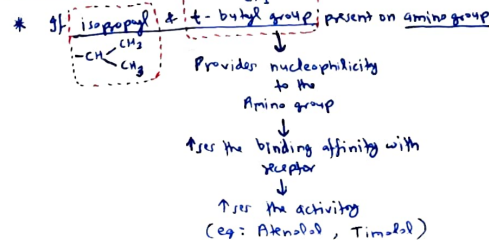 * If isopropyl & t-butyl group present on amino group
-CH
CH3
CH3
Provides nucleophilicity
to the
Amino group
↓
↑ses the binding affinity with
receptor
↓
↑ses the activity
(eg: Atenolol, Timolol)